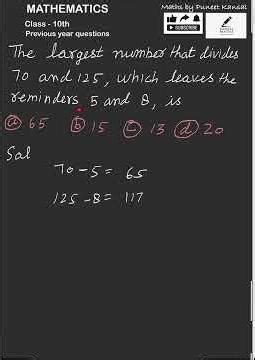 MATHEMATICS
Maths by Puneet Kansal
Class - 10th
Previous year questions
SUBSCRIBE
The largest number that divides
70 and 125, which leaves the
reminders 5 and 8, is
(a) 65 (b) 15 (c) 13 (d) 20
Sol
70 - 5 = 65
125 - 8 = 117